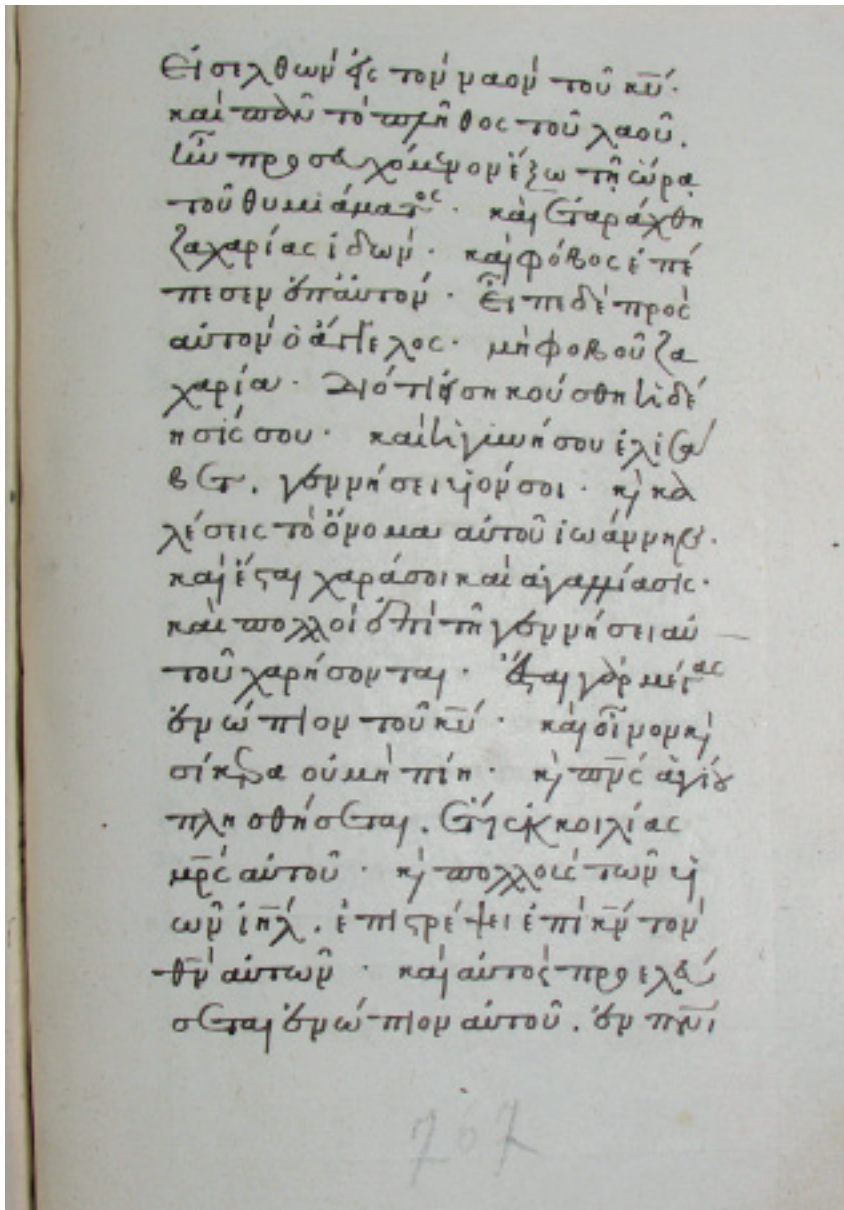 Εἰσελθὼν εἰς τὸν ναὸν τοῦ κυ̅·
καὶ πᾶν τὸ πλῆθος τοῦ λαοῦ.
ἦν προσευχόμενον ἔξω τῇ ὥρᾳ
τοῦ θυμιάματος· καὶ ἐταράχθη
ζαχαρίας ἰδών· καὶ φόβος ἐπέ
πεσεν ἐπ' αὐτόν· Εἶπε δὲ πρὸς
αὐτὸν ὁ ἄγγελος· μὴ φοβοῦ ζα
χαρία· Διότι εἰσηκούσθη ἡ δέ
ησίς σου· καὶ ἡ γυνή σου ἐλισά
βετ. γεννήσει υἱόν σοι· κ καλ
λέσεις τὸ ὄνομα αὐτοῦ ἰωάννην·
καὶ ἔσται χαρά σοι καὶ ἀγαλλίασις·
καὶ πολλοὶ ἐπὶ τῇ γεννήσει αὐ
τοῦ χαρήσονται· Ἔσται γὰρ μέγας
ἐνώπιον τοῦ κυ̅· καὶ οἶνον κ
σίκερα οὐ μὴ πίῃ· κ πνς̅ ἁγίου
πλησθήσεται. ἔτι ἐκ κοιλίας
μρς̅ αὐτοῦ· κ πολλοὺς τῶν υἱ
ῶν ιηλ̅. ἐπιστρέψει ἐπὶ κν̅ τὸν
θν̅ αὐτῶν· καὶ αὐτὸς προελεύ
σεται ἐνώπιον αὐτοῦ. ἐν πνι̅
767